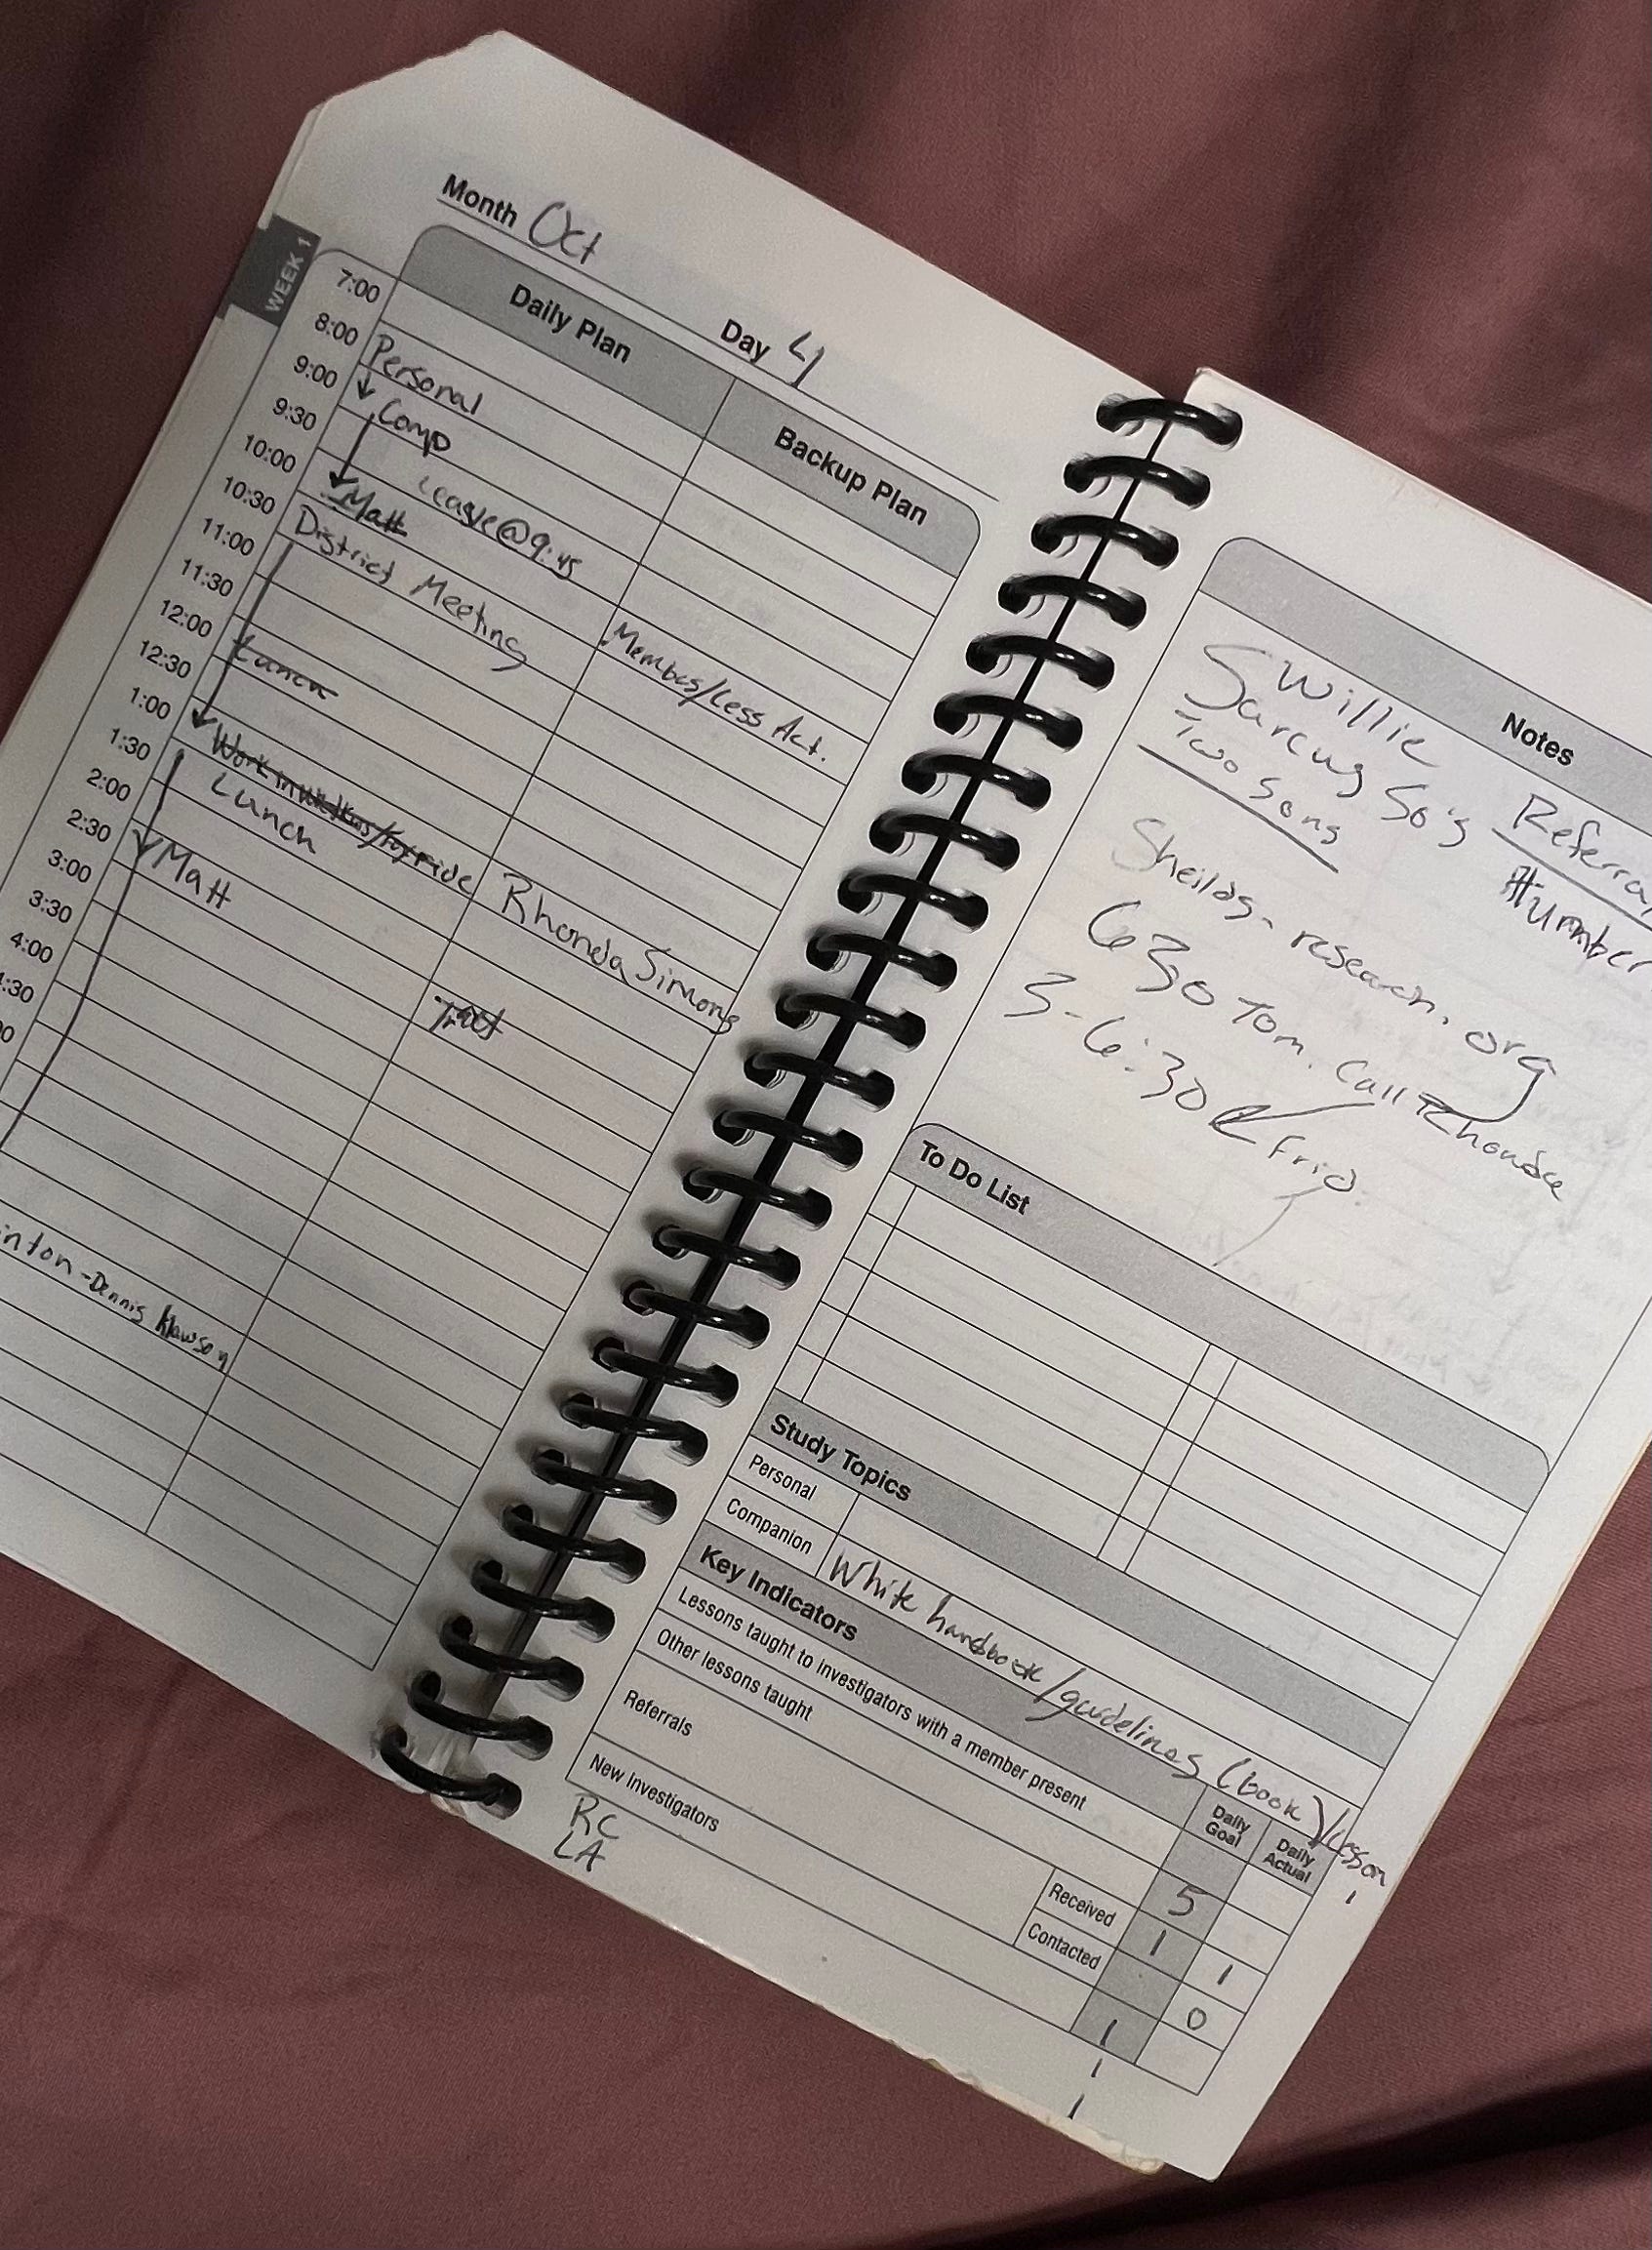 Month Oct
Day 4
WEEK 1
Daily Plan
Backup Plan
7:00
8:00 Personal
9:00 Comp
9:30 Leave@9:45
10:00 Matt
10:30 District Meeting
11:00
Members/Less Act.
11:30
12:00 Lunch
12:30
1:00
1:30 Lunch
2:00
Rhonda Simons
2:30 Matt
3:00
Tract
3:30
4:00
:30
00
inton - Dennis Klawson
Notes
Willie
50's
Two Sons
Referral
#umber
research.org
630 Tom. Call Rhonda
3-6:30
To Do List
Study Topics
Personal
Companion White handbook/guidelines (book)/lesson
Key Indicators
Daily Goal
Daily Actual
Lessons taught to investigators with a member present
Other lessons taught 5
Referrals
Received 1 1
Contacted 0
New Investigators 1
RC 1
LA 1